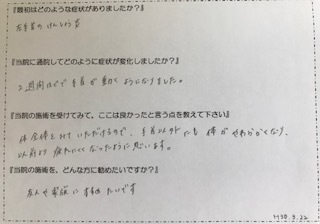 『最初はどのような症状がありましたか？』
左手首のけんしょう炎
『当院に通院してどのように症状が変化しましたか？』
2週間ほどで手首が動くようになりました。
『当院の施術を受けてみて、ここは良かったと言う点を教えて下さい』
体全体をみていただけるので、手首以外にも体がやわらかくなり、
以前より疲れにくくなったように思います。
『当院の施術を、どんな方に勧めたいですか？』
友人や家族にすすめたいです
H30.9.22